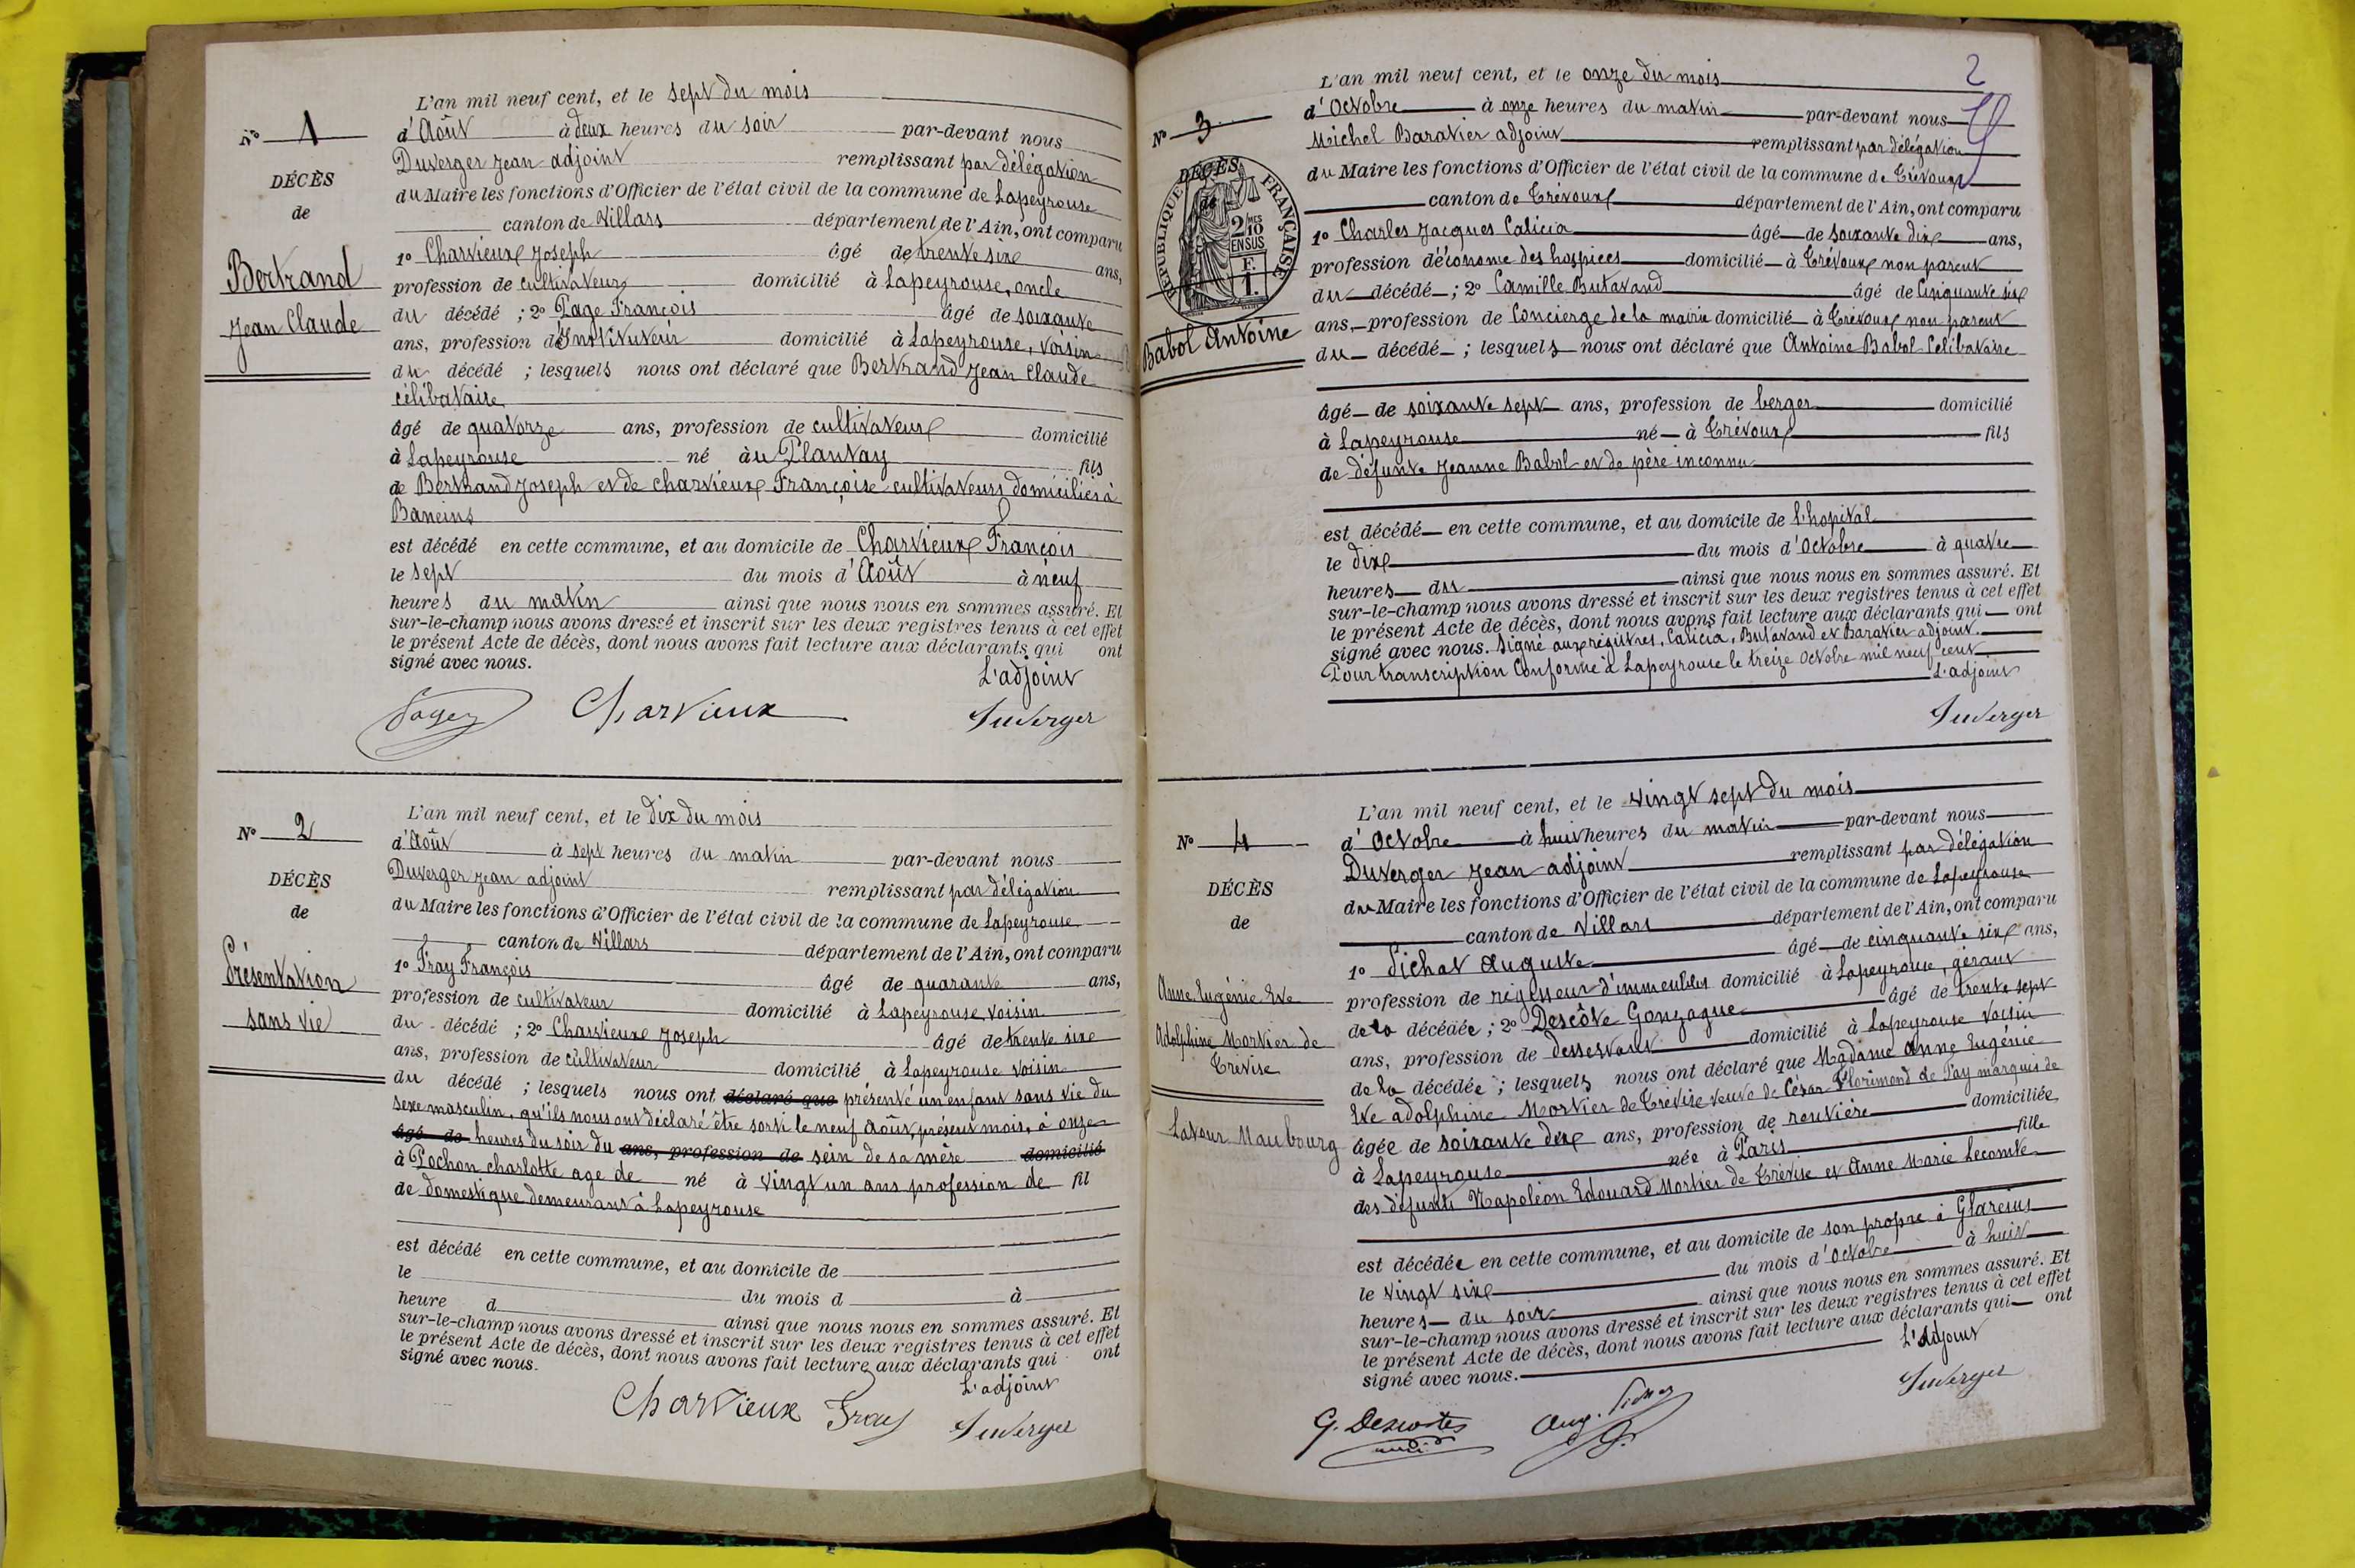 N° 1
DÉCÈS
de
Bertrand
Jean Claude
L'an mil neuf cent, et le sept du mois
d'Août à deux heures du soir par-devant nous
Duverger Jean adjoint remplissant par délégation
du Maire les fonctions d'Officier de l'état civil de la commune de Lapeyrouse
canton de Villars département de l'Ain, ont comparu
1° Charvieux Joseph âgé de trente six ans,
profession de cultivateur domicilié à Lapeyrouse, oncle
du décédé ; 2° Page François âgé de soixante
ans, profession d'Instituteur domicilié à Lapeyrouse, voisin
du décédé ; lesquels nous ont déclaré que Bertrand Jean Claude
célibataire
âgé de quatorze ans, profession de cultivateur domicilié
à Lapeyrouse né au Plantay fils
de Bertrand Joseph et de Charvieux Françoise cultivateurs domiciliés à
Baneins
est décédé en cette commune, et au domicile de Charvieux François
le sept du mois d'Août à neuf
heures du matin ainsi que nous nous en sommes assuré. Et
sur-le-champ nous avons dressé et inscrit sur les deux registres tenus à cet effet
le présent Acte de décès, dont nous avons fait lecture aux déclarants qui ont
signé avec nous.
L'adjoint
Charvieux Duverger
N° 2
DÉCÈS
de
Présentation
sans vie
L'an mil neuf cent, et le dix du mois
d'Août à sept heures du matin par-devant nous
Duverger Jean adjoint remplissant par délégation
du Maire les fonctions d'Officier de l'état civil de la commune de Lapeyrouse
canton de Villars département de l'Ain, ont comparu
1° Fray François âgé de quarante ans,
profession de cultivateur domicilié à Lapeyrouse, voisin
du décédé ; 2° Charvieux Joseph âgé de trente six
ans, profession de cultivateur domicilié à Lapeyrouse voisin
du décédé ; lesquels nous ont déclaré que présenté un enfant sans vie du
sexe masculin, qu'ils nous ont déclaré être sorti le neuf Août, présent mois, à onze
âgé de heures du soir du ans, profession de sein de sa mère domicilié
à Pochon charlotte age de né à vingt un ans profession de fil
de domestique demeurant à Lapeyrouse
est décédé en cette commune, et au domicile de
le du mois d à
heure d ainsi que nous nous en sommes assuré. Et
sur-le-champ nous avons dressé et inscrit sur les deux registres tenus à cet effet
le présent Acte de décès, dont nous avons fait lecture aux déclarants qui ont
signé avec nous.
L'adjoint
Charvieux Fray Duverger
2
N° 3
DÉCÈS
de
RÉPUBLIQUE FRANÇAISE
2/10MES
EN SUS
F.
1.
Babol Antoine
L'an mil neuf cent, et le onze du mois
d'Octobre à onze heures du matin par-devant nous
Michel Baratier adjoint remplissant par délégation
du Maire les fonctions d'Officier de l'état civil de la commune de Trévoux
canton de Trévoux département de l'Ain, ont comparu
1° Charles Jacques Calicia âgé de soixante dix ans,
profession d'économe des hospices domicilié à Trévoux non parent
du décédé ; 2° Camille Butavand âgé de Cinquante six
ans, profession de Concierge de la mairie domicilié à Trévoux non parent
du décédé ; lesquels nous ont déclaré que Antoine Babol Célibataire
âgé de soixante sept ans, profession de berger domicilié
à Lapeyrouse né à Trévoux fils
de défunte Jeanne Babol et de père inconnu
est décédé en cette commune, et au domicile de l'hopital
le dix du mois d'Octobre à quatre
heures du ainsi que nous nous en sommes assuré. Et
sur-le-champ nous avons dressé et inscrit sur les deux registres tenus à cet effet
le présent Acte de décès, dont nous avons fait lecture aux déclarants qui ont
signé avec nous. Signé aux registres, Calicia, Butavand et Baratier adjoint.
Pour transcription Conforme à Lapeyrouse le treize Octobre mil neuf cent
L'adjoint
Duverger
N° 4
DÉCÈS
de
Anne Eugénie Eve
Adolphine Mortier de
Trévise
Latour Maubourg
L'an mil neuf cent, et le vingt sept du mois
d'Octobre à huit heures du matin par-devant nous
Duverger Jean adjoint remplissant par délégation
du Maire les fonctions d'Officier de l'état civil de la commune de Lapeyrouse
canton de Villars département de l'Ain, ont comparu
1° Pichat Auguste âgé de cinquante six ans,
profession de régisseur d'immeubles domicilié à Lapeyrouse, gérant
de la décédée ; 2° Descôte Gonzague âgé de trente sept
ans, profession de desservant domicilié à Lapeyrouse voisin
de la décédée ; lesquels nous ont déclaré que Madame Anne Eugénie
Eve adolphine Mortier de Trévise veuve de César Florimond de Fay marquis de
âgée de soixante dix ans, profession de rentière domiciliée
à Lapeyrouse née à Paris fille
des défunts Napoléon Edouard Mortier de Trévise et Anne Marie Lecomte
est décédée en cette commune, et au domicile de son propre à Glareins
le vingt six du mois d'Octobre à huit
heures du soir ainsi que nous nous en sommes assuré. Et
sur-le-champ nous avons dressé et inscrit sur les deux registres tenus à cet effet
le présent Acte de décès, dont nous avons fait lecture aux déclarants qui ont
signé avec nous.
L'Adjoint
G. Descotes Aug. Duverger